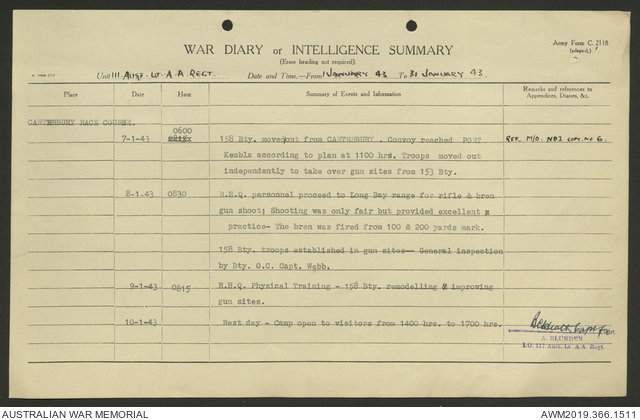 Army Form C. 2118
WAR DIARY or INTELLIGENCE SUMMARY
(Erase heading not required).
Unit 111 AUST. LT. A.A. REGT. Date and Time.—From 1 JANUARY 43 To 31 JANUARY 43.
Place Date Hour Summary of Events and Information Remarks and references to
Appendices, Diaries, &c.
CANTERBURY RACE COURSE.
0600
7-1-43 158 Bty. moved out from CANTERBURY. Convoy reached PORT REF. M/O. NO1 COPY NO 6.
Kembla according to plan at 1100 hrs. Troops moved out
independently to take over gun sites from 153 Bty.
8-1-43 0830 R.H.Q. personnel proceed to Long Bay range for rifle & bren
gun shoot; Shooting was only fair but provided excellent
practice- The bren was fired from 100 & 200 yards mark.
158 Bty. troops established in gun sites-- General inspection
by Bty. O.C. Capt. Webb.
9-1-43 0815 R.H.Q. Physical Training - 158 Bty. remodelling & improving
gun sites.
10-1-43 Rest day - Camp open to visitors from 1400 hrs. to 1700 hrs.
A BLUNDEN
I.O. 111 Aust. Lt. A.A. Regt.
AUSTRALIAN WAR MEMORIAL AWM2019.366.1511